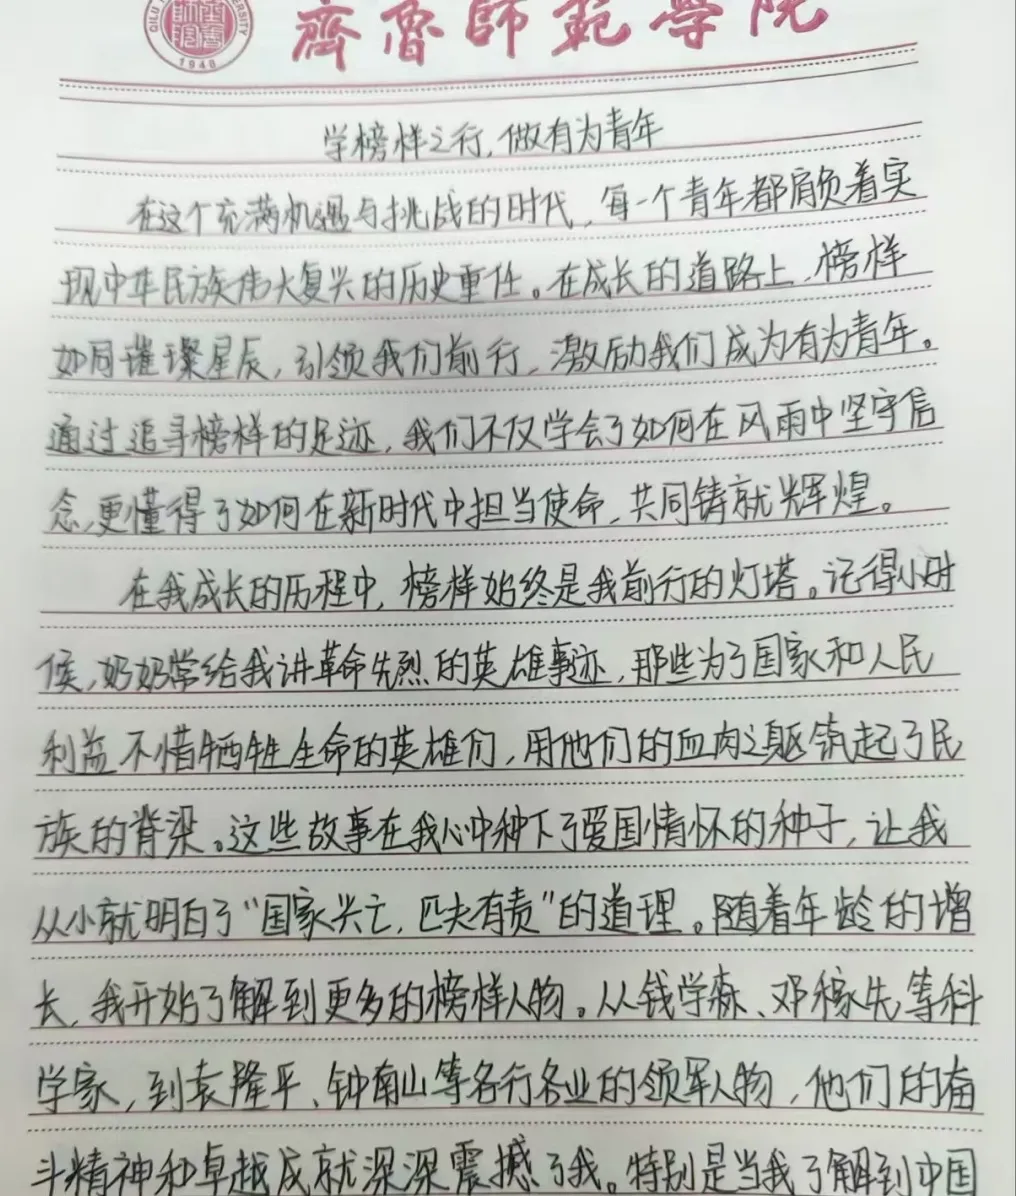 齊魯師範學院
1948
学榜样之行,做有为青年
在这个充满机遇与挑战的时代,每一个青年都肩负着实
现中华民族伟大复兴的历史重任。在成长的道路上,榜样
如同璀璨星辰,引领我们前行,激励我们成为有为青年。
通过追寻榜样的足迹,我们不仅学会了如何在风雨中坚守信
念,更懂得了如何在新时代中担当使命,共同铸就辉煌。
在我成长的历程中,榜样始终是我前行的灯塔。记得小时
候,奶奶常给我讲革命先烈的英雄事迹,那些为了国家和人民
利益不惜牺牲生命的英雄们,用他们的血肉之躯筑起了民
族的脊梁。这些故事在我心中种下了爱国情怀的种子,让我
从小就明白了“国家兴亡,匹夫有责”的道理。随着年龄的增
长,我开始了解到更多的榜样人物。从钱学森、邓稼先等科
学家,到袁隆平、钟南山等各行各业的领军人物,他们的奋
斗精神和卓越成就深深震撼了我。特别是当我了解到中国